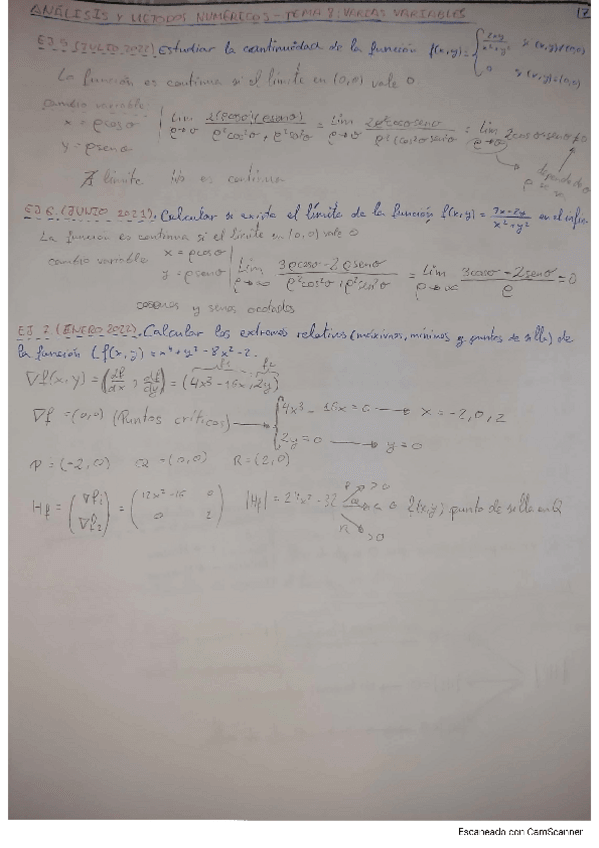 ANÁLISIS Y METODOS NUMERICOS - TEMA 8: VARIAS VARIABLES 17
EJ 5 (JULIO 2021) Estudiar la continuidad de la función f(x,y) = { 2xy / x²+y² si (x,y)≠(0,0)
0 si (x,y)=(0,0)
La función es continua si el límite en (0,0) vale 0
cambio variable
x = ρcosσ | lim ρ→0 2(ρcosσ)(ρsenσ) / ρ²cos²σ + ρ²cos²σ = lim ρ→0 2ρ²cosσsenσ / ρ²(cos²σ sen²σ = lim ρ→0 2cosσsenσ ≠ 0
y = ρsenσ
depende de σ
∄ límite No es continua
EJ 6. (JUNIO 2021). Calcular si existe el límite de la función f(x,y) = 3x-2y / x²+y² en el
La función es continua si el límite en (0,0) vale 0
cambio variable x = ρcosσ
y = ρsenσ | lim ρ→∞ 3ρcosσ - 2ρsenσ / ρ²cos²σ + ρ²sen²σ = lim ρ→∞ 3cosσ - 2senσ / ρ = 0
cosenos y senos acotados
EJ 7. (ENERO 2022). Calcular los extremos relativos (máximos, mínimos y puntos de silla) de
la función f(x,y) = x⁴ + y² - 8x² - 2.
∇f(x,y) = (df/dx, df/dy) = (4x³ - 16x, 2y) f1 f2
∇f = (0,0) (Puntos críticos) → { 4x³ - 16x = 0 → x = -2, 0, 2
2y = 0 → y = 0
P = (-2,0) Q = (0,0) R = (2,0)
Hf = (∇f1 ∇f2) = (12x² - 16 0 0 2) |Hf| = 24x² - 32 P > 0 Q < 0 R > 0 f(x,y) punto de silla en Q
Escaneado con CamScanner